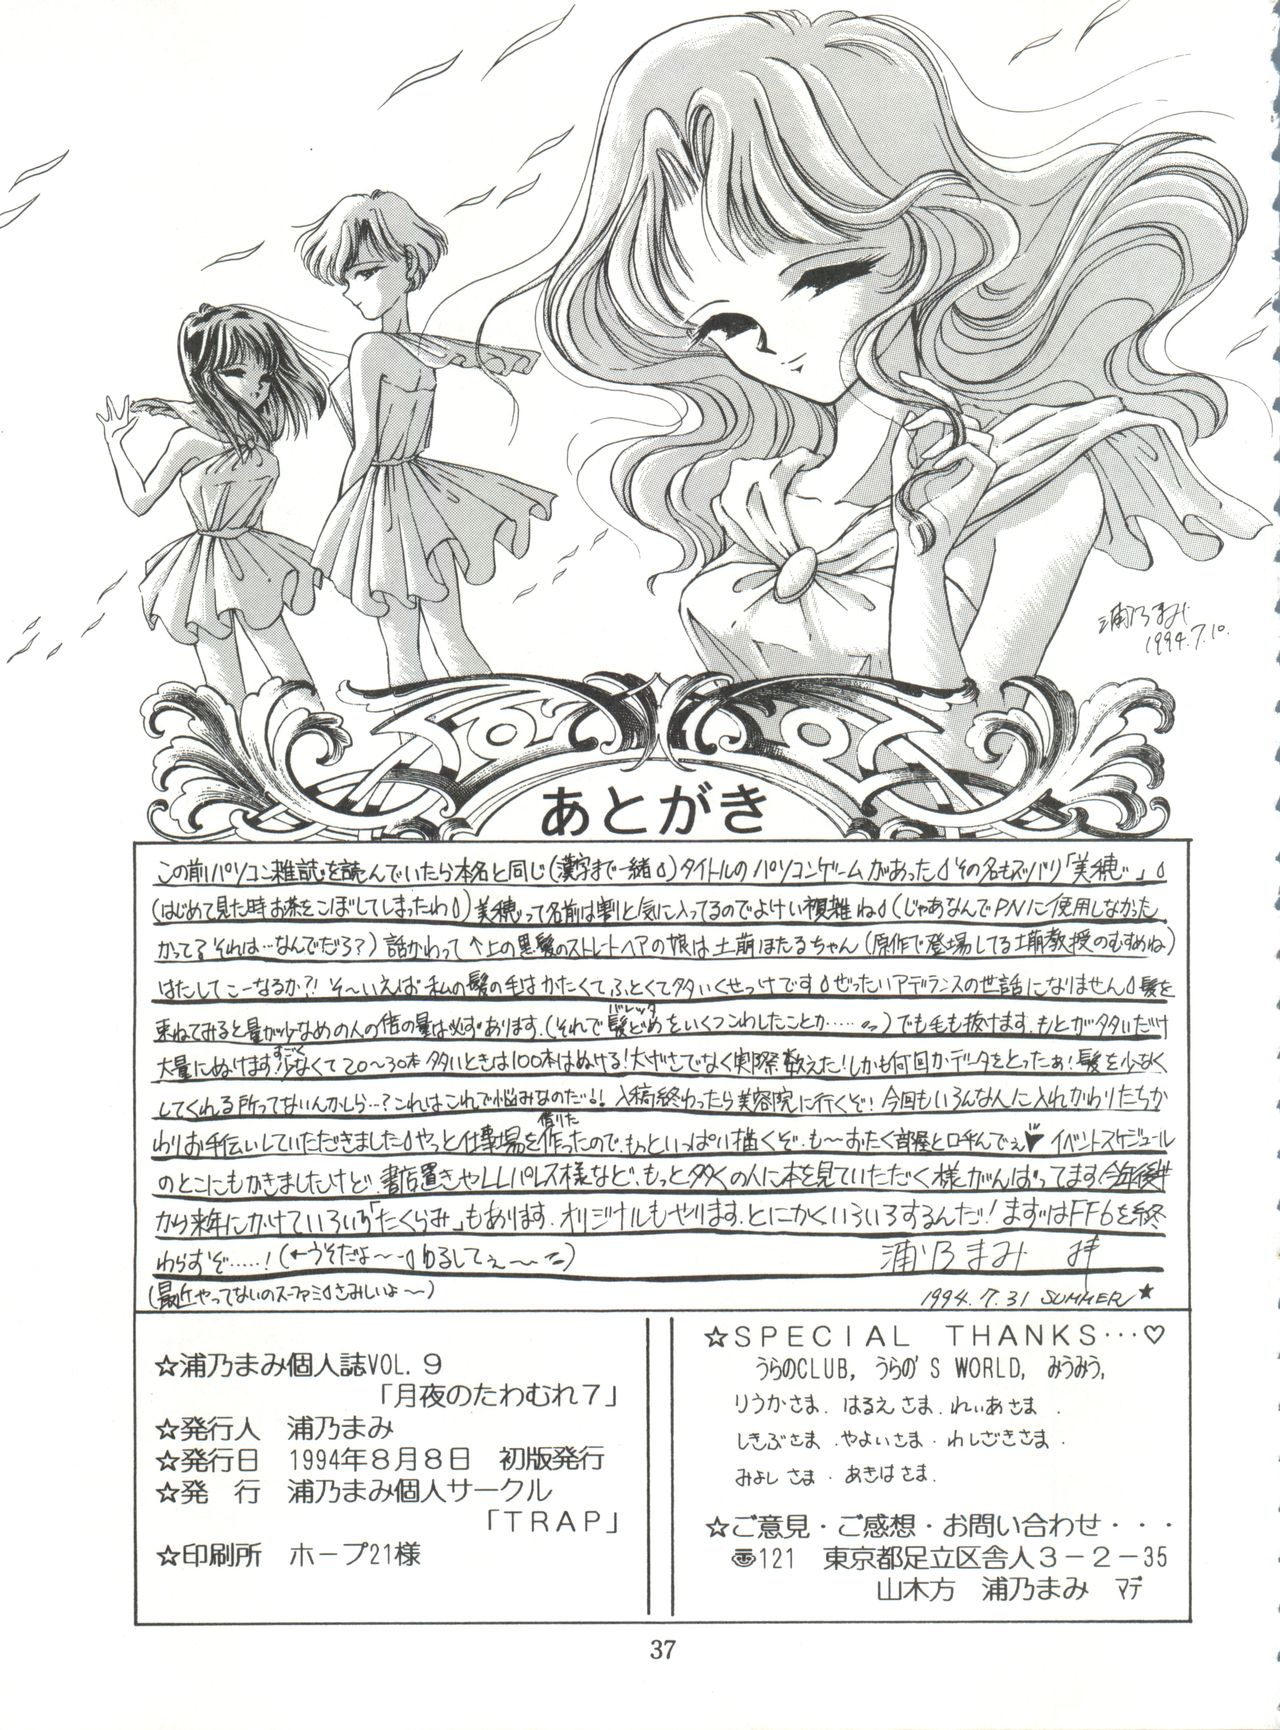 浦乃まみ
1994.7.10.
あとがき
この前パソコン雑誌を読んでいたら本名と同じ(漢字まで一緒)タイトルのパソコンゲームがあった その名もズバリ「美穂」
(はじめて見た時お茶をこぼしてしまったわ)美穂って名前は割と気に入ってるのでよけい複雑ね(じゃあなんでPNに使用しなかった
かってる それは…なんでだろ?)話かわって↑上の黒髪のストレートヘアの娘は土萠ほたるちゃん(原作で登場してる土萠教授のむすめね)
はたしてこーなるか?! そ〜いえば私の髪の毛はかたくてふとくて多いくせっけです ぜったいアデランスの世話になりません 髪を
束ねてみると量が少なめの人の倍の量は必ずあります.(それで髪どめ(バレッタ)をいくつこわしたことか……)でも毛も抜けます.もとが多いだけ
大量にぬけます!すごく少なくて20〜30本 多いときは100本はぬける!大げさでなく実際数えた!しかも何回かデータをとったぁ!髪を少なく
してくれる所ってないんかしら…?これはこれで悩みなのだ!! 入稿終わったら美容院に行くぞ! 今回もいろんな人に入れかわりたちか
わりお手伝いしていただきました やっと仕事場を借りた作ったので.もっといっぱい描くぞ.も〜おたく部屋と呼んでぇ♥ イベントスケジュール
のとこにもかきましたけど.書店置きやLLパレス様など.もっと多くの人に本を見ていただく様がんばってます.今年後半
から来年にかけていろいろ「たくらみ」もあります.オリジナルもやります.とにかくいろいろするんだ! まずはFF6を終
わらすぞ……!(←うそだよ〜 ゆるしてぇ〜) 浦乃まみ 拝
(最近やってないのスーファミ さみしいよ〜) 1994.7.31 SUMMER★
☆浦乃まみ個人誌VOL.9
「月夜のたわむれ7」
☆発行人 浦乃まみ
☆発行日 1994年8月8日 初版発行
☆発 行 浦乃まみ個人サークル
「TRAP」
☆印刷所 ホープ21様
☆SPECIAL THANKS…♡
うらのCLUB, うらの'S WORLD, みうみう,
りうかさま.はるえさま.れいあさま.
しきぶさま.やよいさま.わしざきさま.
みよしさま.あきはさま.
☆ご意見・ご感想・お問い合わせ・・・
〠121 東京都足立区舎人3-2-35
山木方 浦乃まみ マデ
37